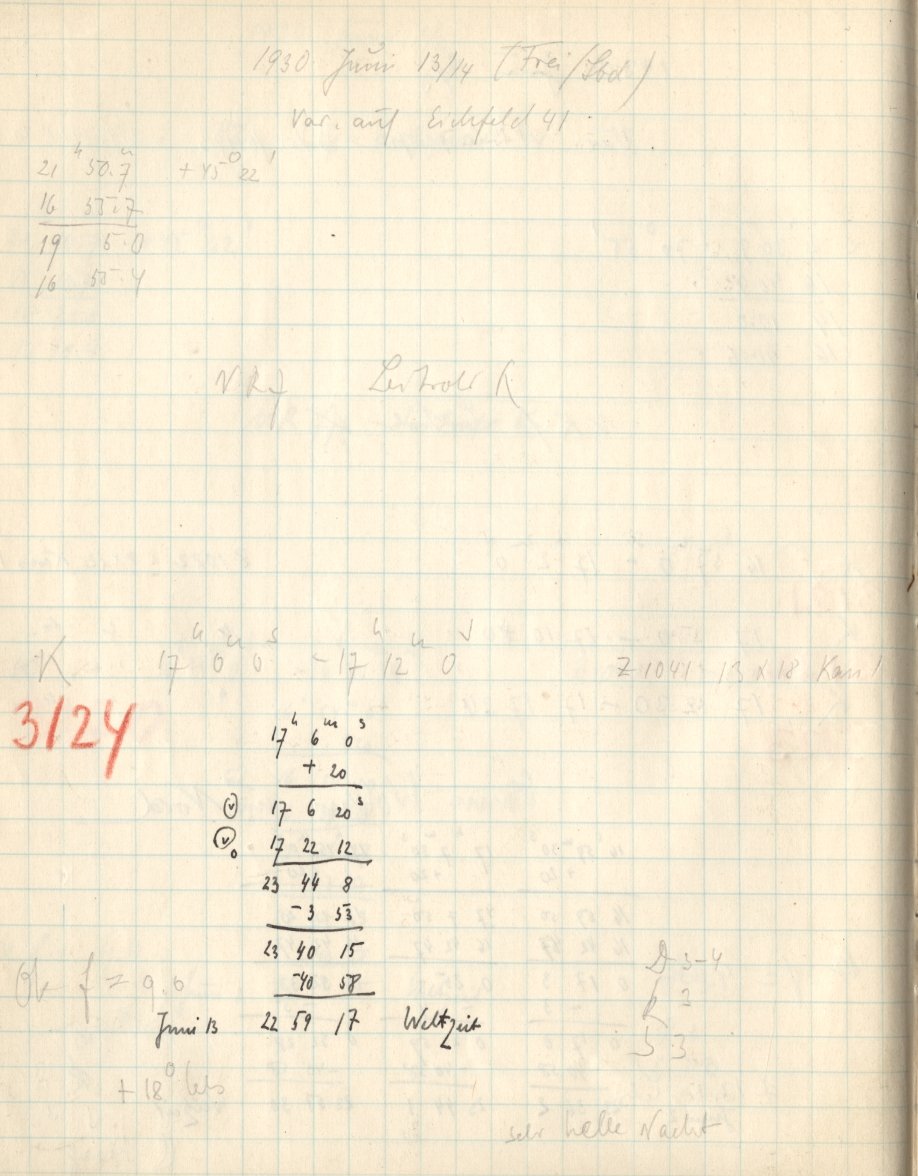 1930 Juni 13/14 (Frei/Sbd)
Var. auf Eichfeld 41
21 h 50.7 m +45° 22'
16 55.7
19 5.0
16 55.4
Leitrohr K
K 17 h 0 m 0 s - 17 h 12 m 0 s Z 1041 13 x 18
3/24
17 h 6 m 0 s
+ 20
17 6 20 s
17 22 12
23 44 8
-3 53
23 40 15
-40 58
Juni 13 22 59 17 Weltzeit
f = 9.0
3-4
3
S 3
+ 18°
sehr helle Nacht